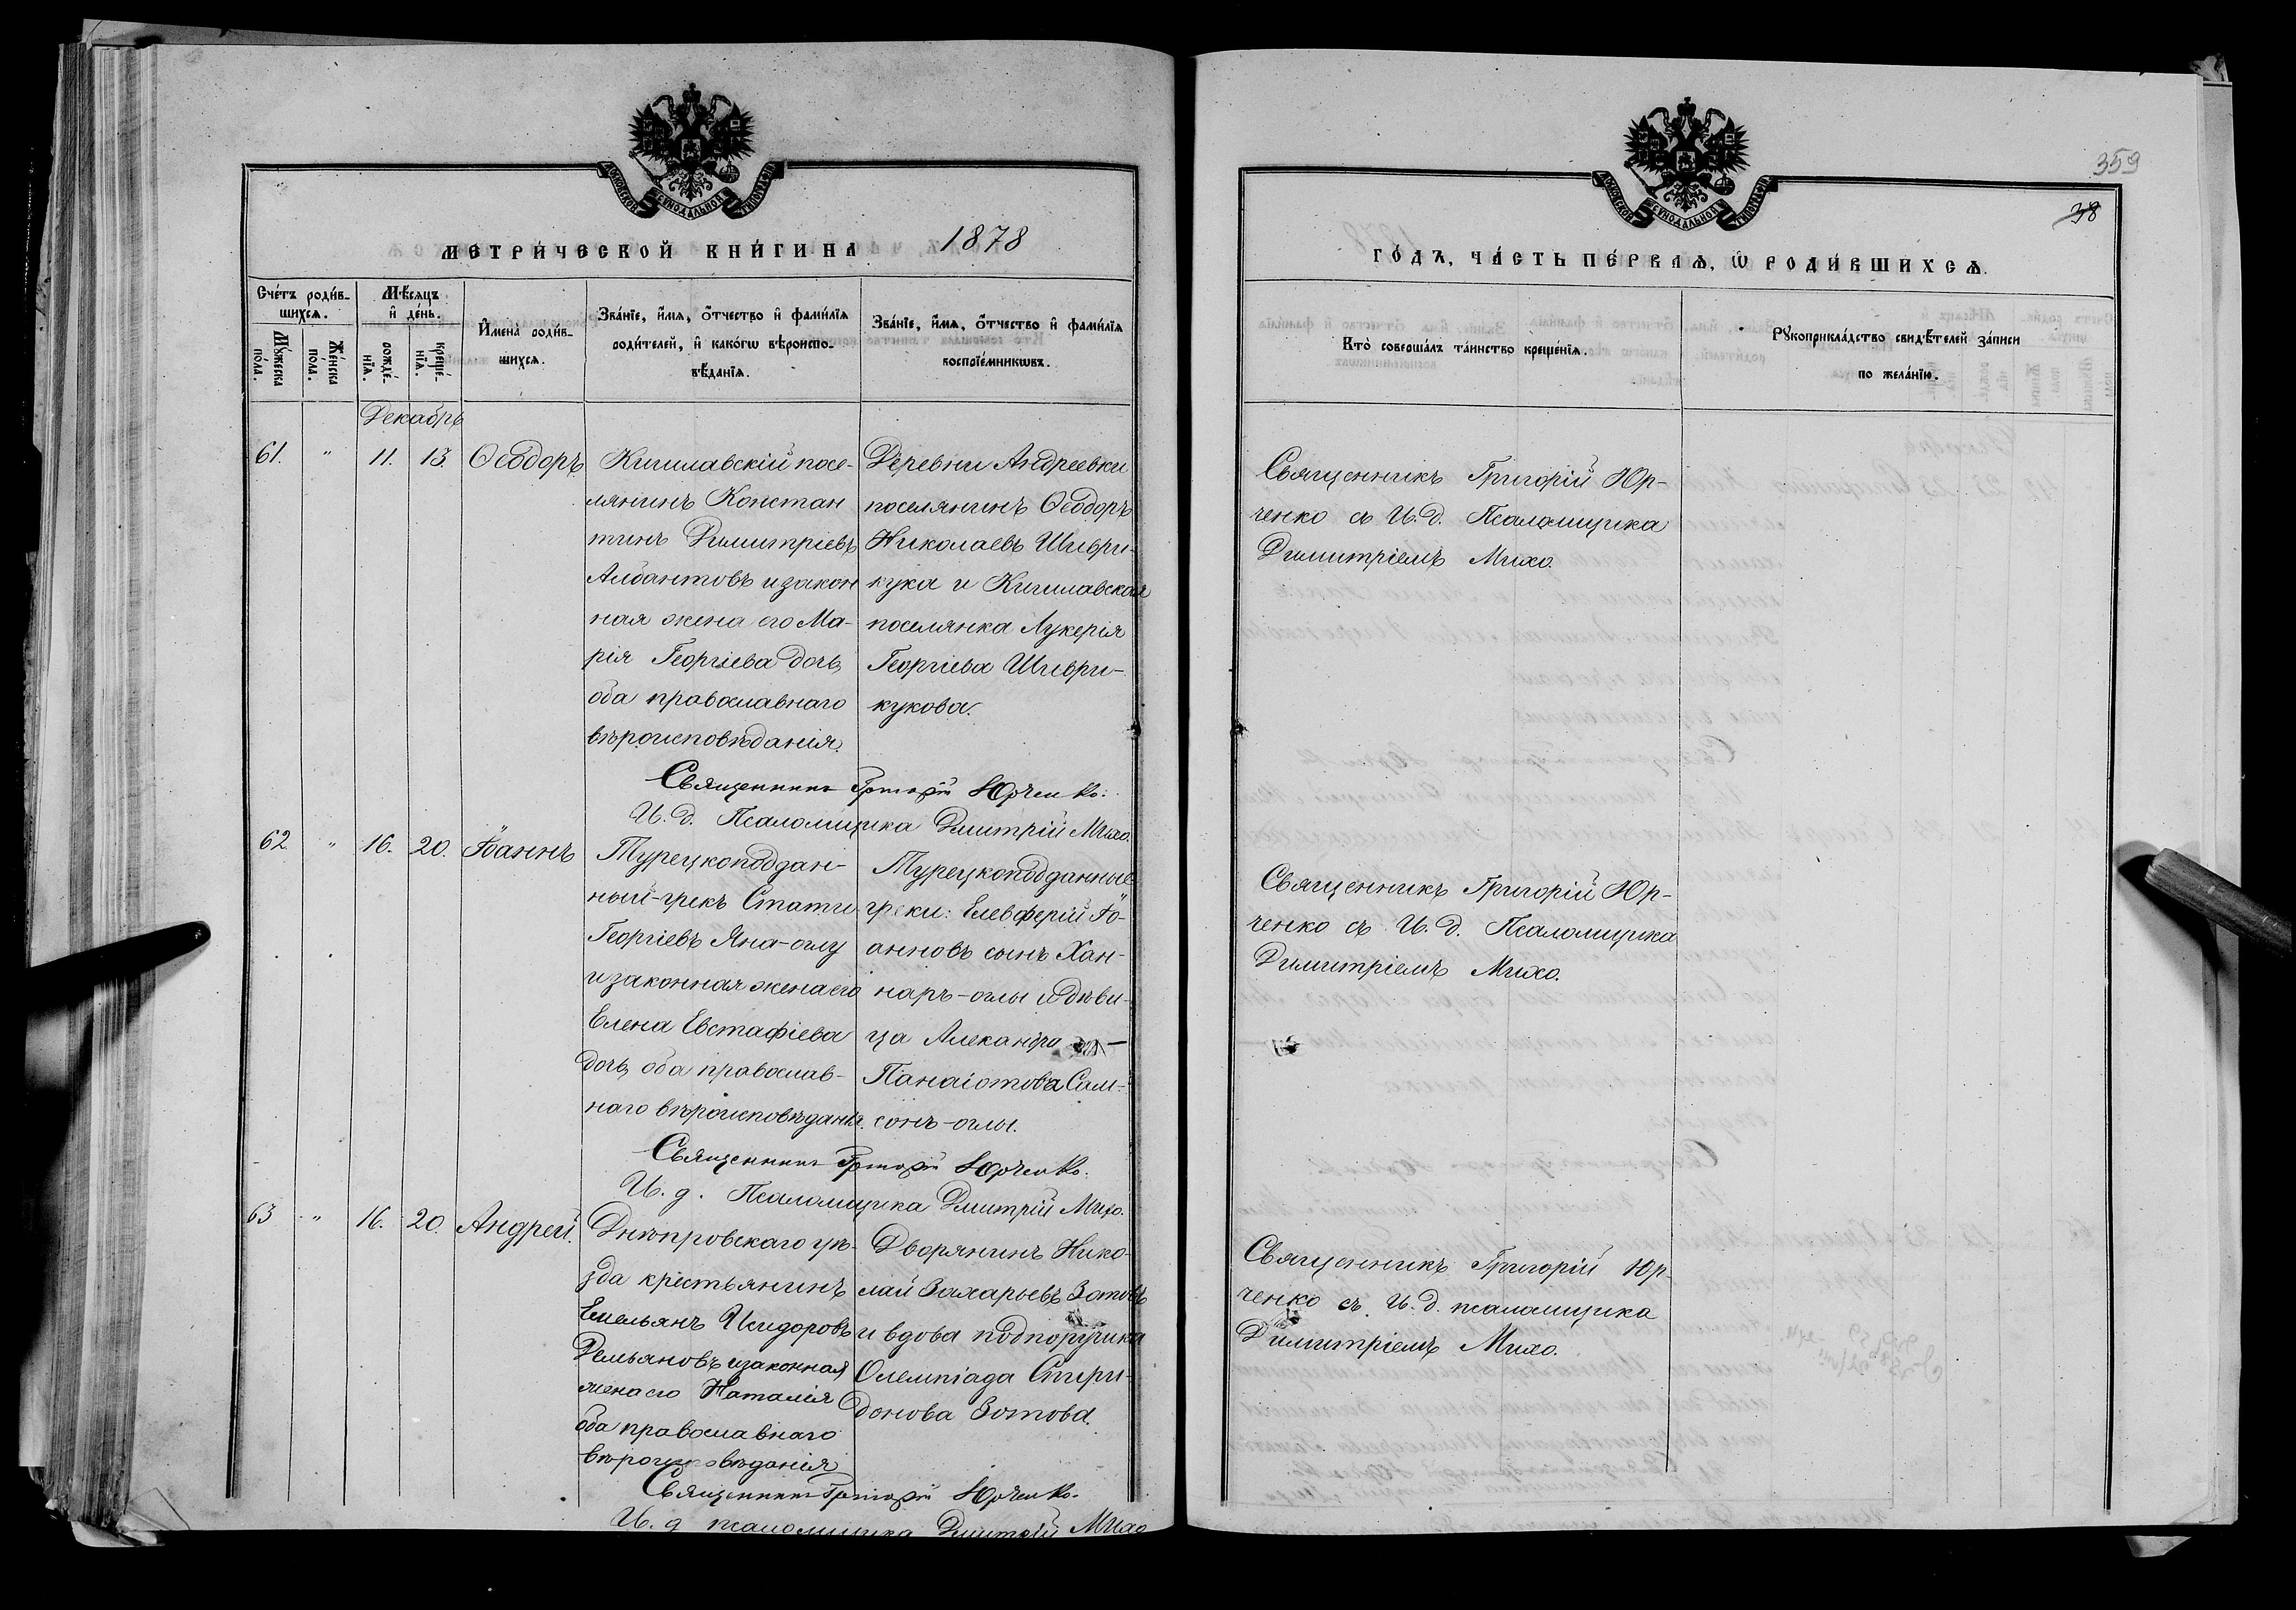 МОСКОВСКОЙ СѴНОДАЛЬНОЙ ТИПОГРАФІИ
МЕТРИ́ЧЕСКОЙ КНИ́ГИ НА 1878
Сче́тъ роди́в-
шихсѧ.
Мꙋ́жеска
пола.
Же́нска
пола.
Мѣ́сѧцъ
и҆ де́нь.
рожде́-
нїѧ.
креще́-
нїѧ.
И҆мена̀ роди́в-
шихсѧ.
Зва́нїе, и҆́мѧ, ѻ҆́тчество и҆ фами́лїѧ
роди́телей, и҆ како́гѡ вѣроиспо-
вѣ́данїѧ.
Зва́нїе, и҆́мѧ, ѻ҆́тчество и҆ фами́лїѧ
воспрїе́мникѡвъ.
Декабрь
61. " 11. 13. Ѳеодоръ
Кишлавскій посе-
лянинъ Констан
тинъ Димитріевъ
Албантовъ и закон
ная жена его Ма-
рія Георгіева дочь,
оба православнаго
вѣроисповѣданія.
Деревни Андреевки
поселянинъ Ѳеодоръ
Николаевъ Шиври-
кука и Кишлавская
поселянка Лукерія
Георгіева Шиври-
кукова.
Священникъ Григорій Юрченко.
И. д. Псаломщика Дмитрій Михо.
62 " 16. 20. Іоаннъ
Турецкоподдан-
ный-грекъ Стати
Георгіевъ Яна-оглу
и законная жена его
Елена Евстафіева
дочь, оба православ-
наго вѣроисповѣданія.
Турецкоподданные
греки: Елевферій Іо-
анновъ сынъ Хан-
наръ-оглы и дѣви-
ца Алекандра
Панаіотова Сам-
сонъ-оглы.
Священникъ Григорій Юрченко.
И. д. Псаломщика Дмитрій Михо.
63 " 16. 20. Андрей.
Днѣпровскаго уѣ-
зда крестьянинъ
Емельянъ Исидоровъ
Демьяновъ и законная
жена его Наталія
оба православнаго
вѣроисповѣданія
Дворянинъ Нико-
лай Захарьевъ Зотовъ
и вдова подпоручика
Олемпіада Спири-
донова Зотова.
Священникъ Григорій Юрченко.
И. д псаломщика Дмитрій Михо
359
38
МОСКОВСКОЙ СѴНОДАЛЬНОЙ ТИПОГРАФІИ
ГО́ДЪ, ЧА́СТЬ ПЕ́РВАѦ, Ѡ҆ РОДИ́ВШИХСѦ.
Кто̀ соверша́лъ та́инство креще́нїѧ.
Рꙋкоприкла́дство свидѣ́телей за́писи
по жела́нїю.
Священникъ Григорій Юр-
ченко съ И. д. Псаломщика
Димитріемъ Михо.
Священникъ Григорій Юр-
ченко съ И. д. Псаломщика
Димитріемъ Михо.
Священникъ Григорій Юр-
ченко съ И. д. псаломщика
Димитріемъ Михо.